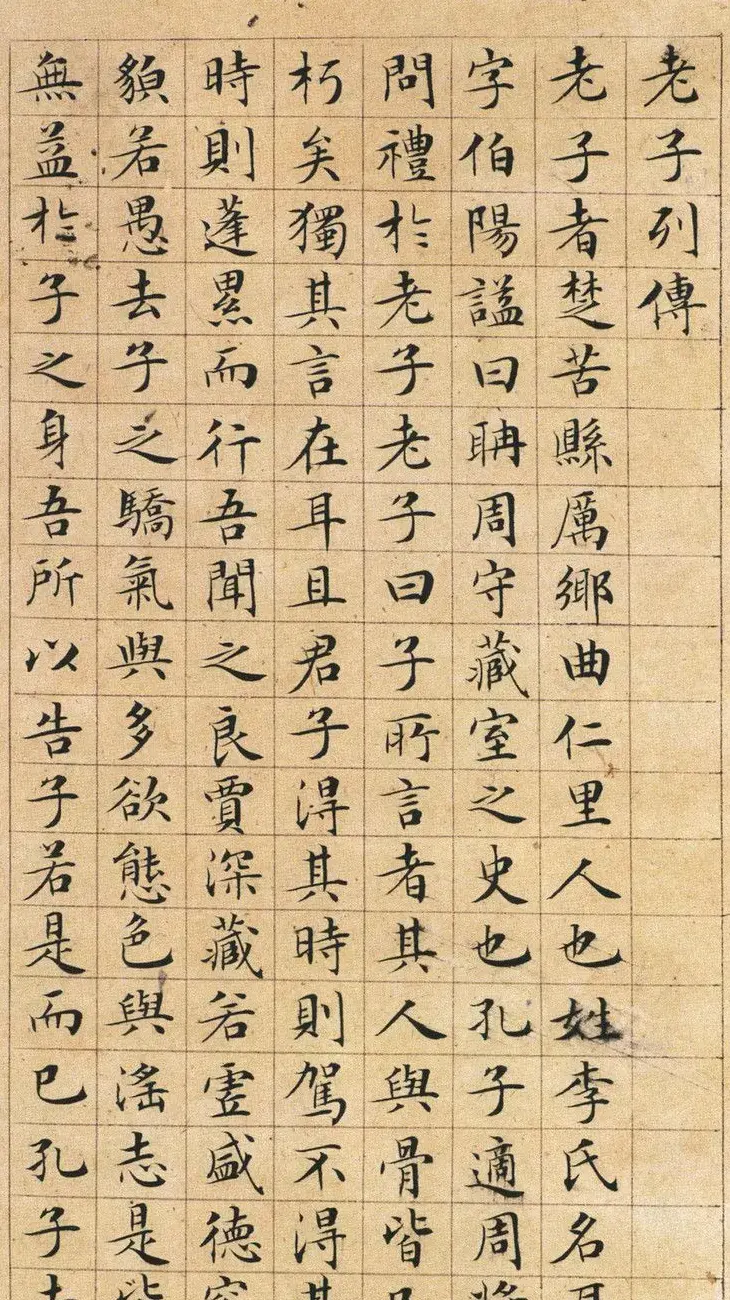 老子列傳
老子者楚苦縣厲鄉曲仁里人也姓李氏名
字伯陽謚曰聃周守藏室之史也孔子適周將
問禮於老子老子曰子所言者其人與骨皆
朽矣獨其言在耳且君子得其時則駕不得其
時則蓬累而行吾聞之良賈深藏若虛盛德容
貌若愚去子之驕氣與多欲態色與滛志是皆
無益於子之身吾所以告子若是而已孔子去